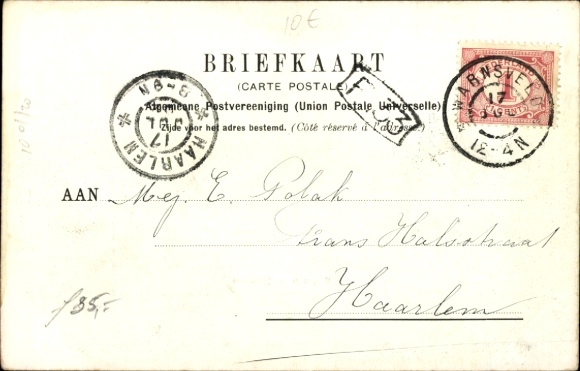 10€
BRIEFKAART
(CARTE POSTALE)
Algemeene Postvereeniging (Union Postale Universelle)
Zijde voor het adres bestemd. (Côté réservé à l'adresse.)
NEDERLAND
1
WARNSVELD
17
12-4N
HAARLEM
17
JUL
8-9N
AAN Mej. E. Polak
Frans Halsstraat
Haarlem
f 35,-